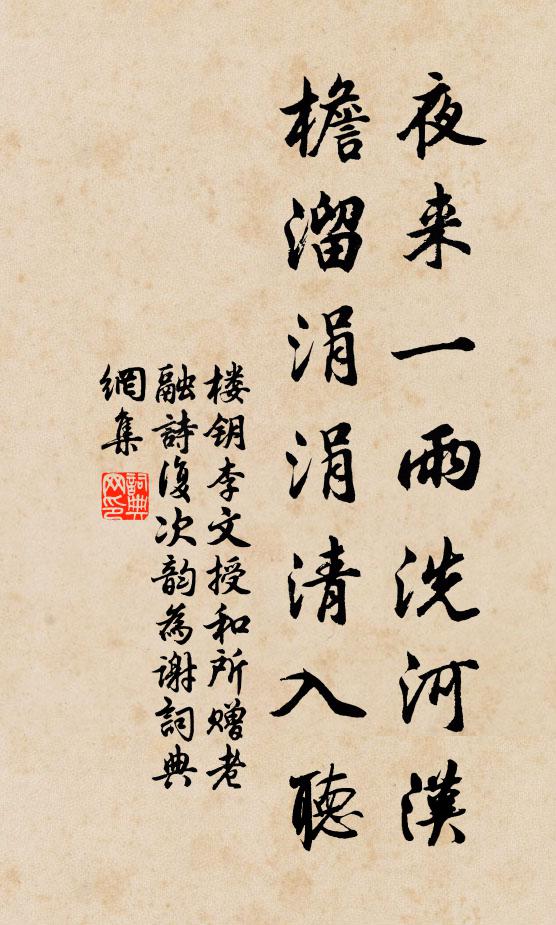 夜来一雨洗河漢
檐溜涓涓清入聽
楼钥李文授和所赠老
融詩復次韵為谢詞典
網集
詞典
网印